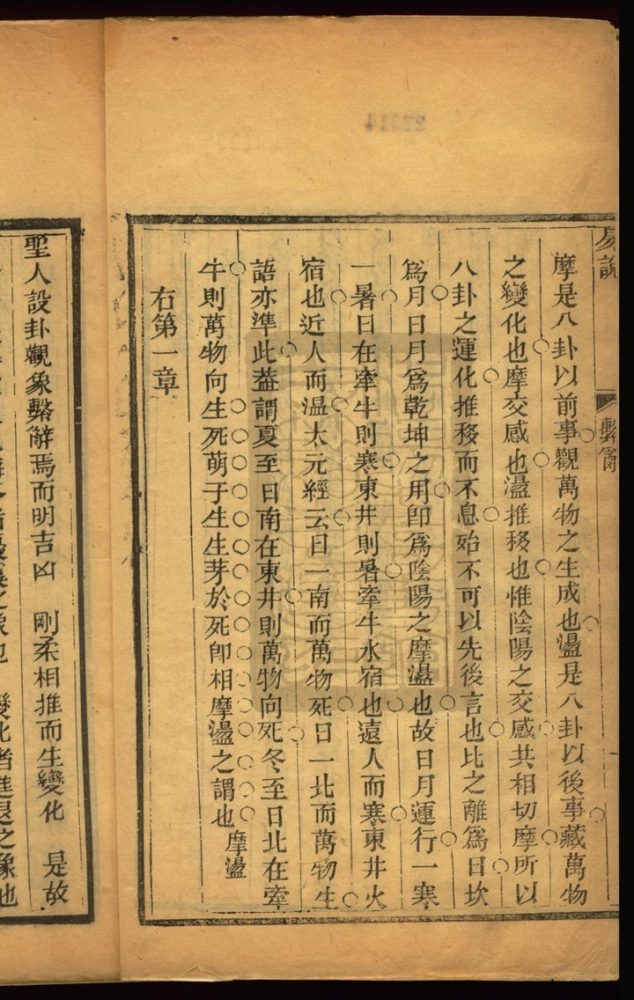 易說 繫辭
摩是八卦以前事觀萬物之生成也盪是八卦以後事藏萬物
之變化也摩交感也盪推移也惟陰陽之交感共相切摩所以
八卦之運化推移而不息始不可以先後言也比之離爲日坎
爲月日月爲乾坤之用卽爲陰陽之摩盪也故日月運行一寒
一暑日在牽牛則寒東井則暑牽牛水宿也遠人而寒東井火
宿也近人而温太元經云日一南而萬物死日一北而萬物生
語亦準此葢謂夏至日南在東井則萬物向死冬至日北在牽
牛則萬物向生死萌于生生芽於死卽相摩盪之謂也 摩盪
右第一章
聖人設卦觀象繫辭焉而明吉凶 剛柔相推而生變化 是故
變化者進退之象也